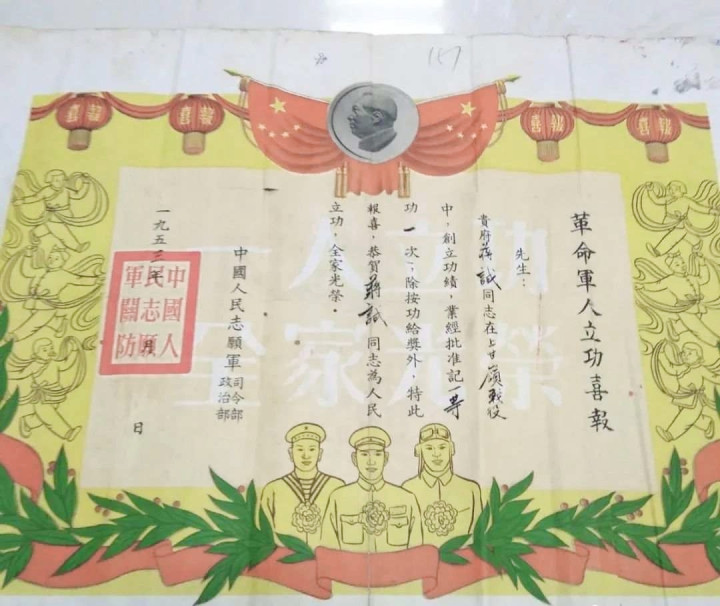 革命軍人立功喜報
先生：
貴府蔣誠同志在上甘嶺戰役
中，創立功績，業經批准記一等
功一次，除按功給獎外，特此
報喜，恭賀蔣誠同志為人民
立功，全家光榮。
中國人民志願軍司令部
政治部
一九五三年 月 日
中國人
民志願
軍關防
一人立功
全家光榮
喜報
喜報
喜報
喜報
157